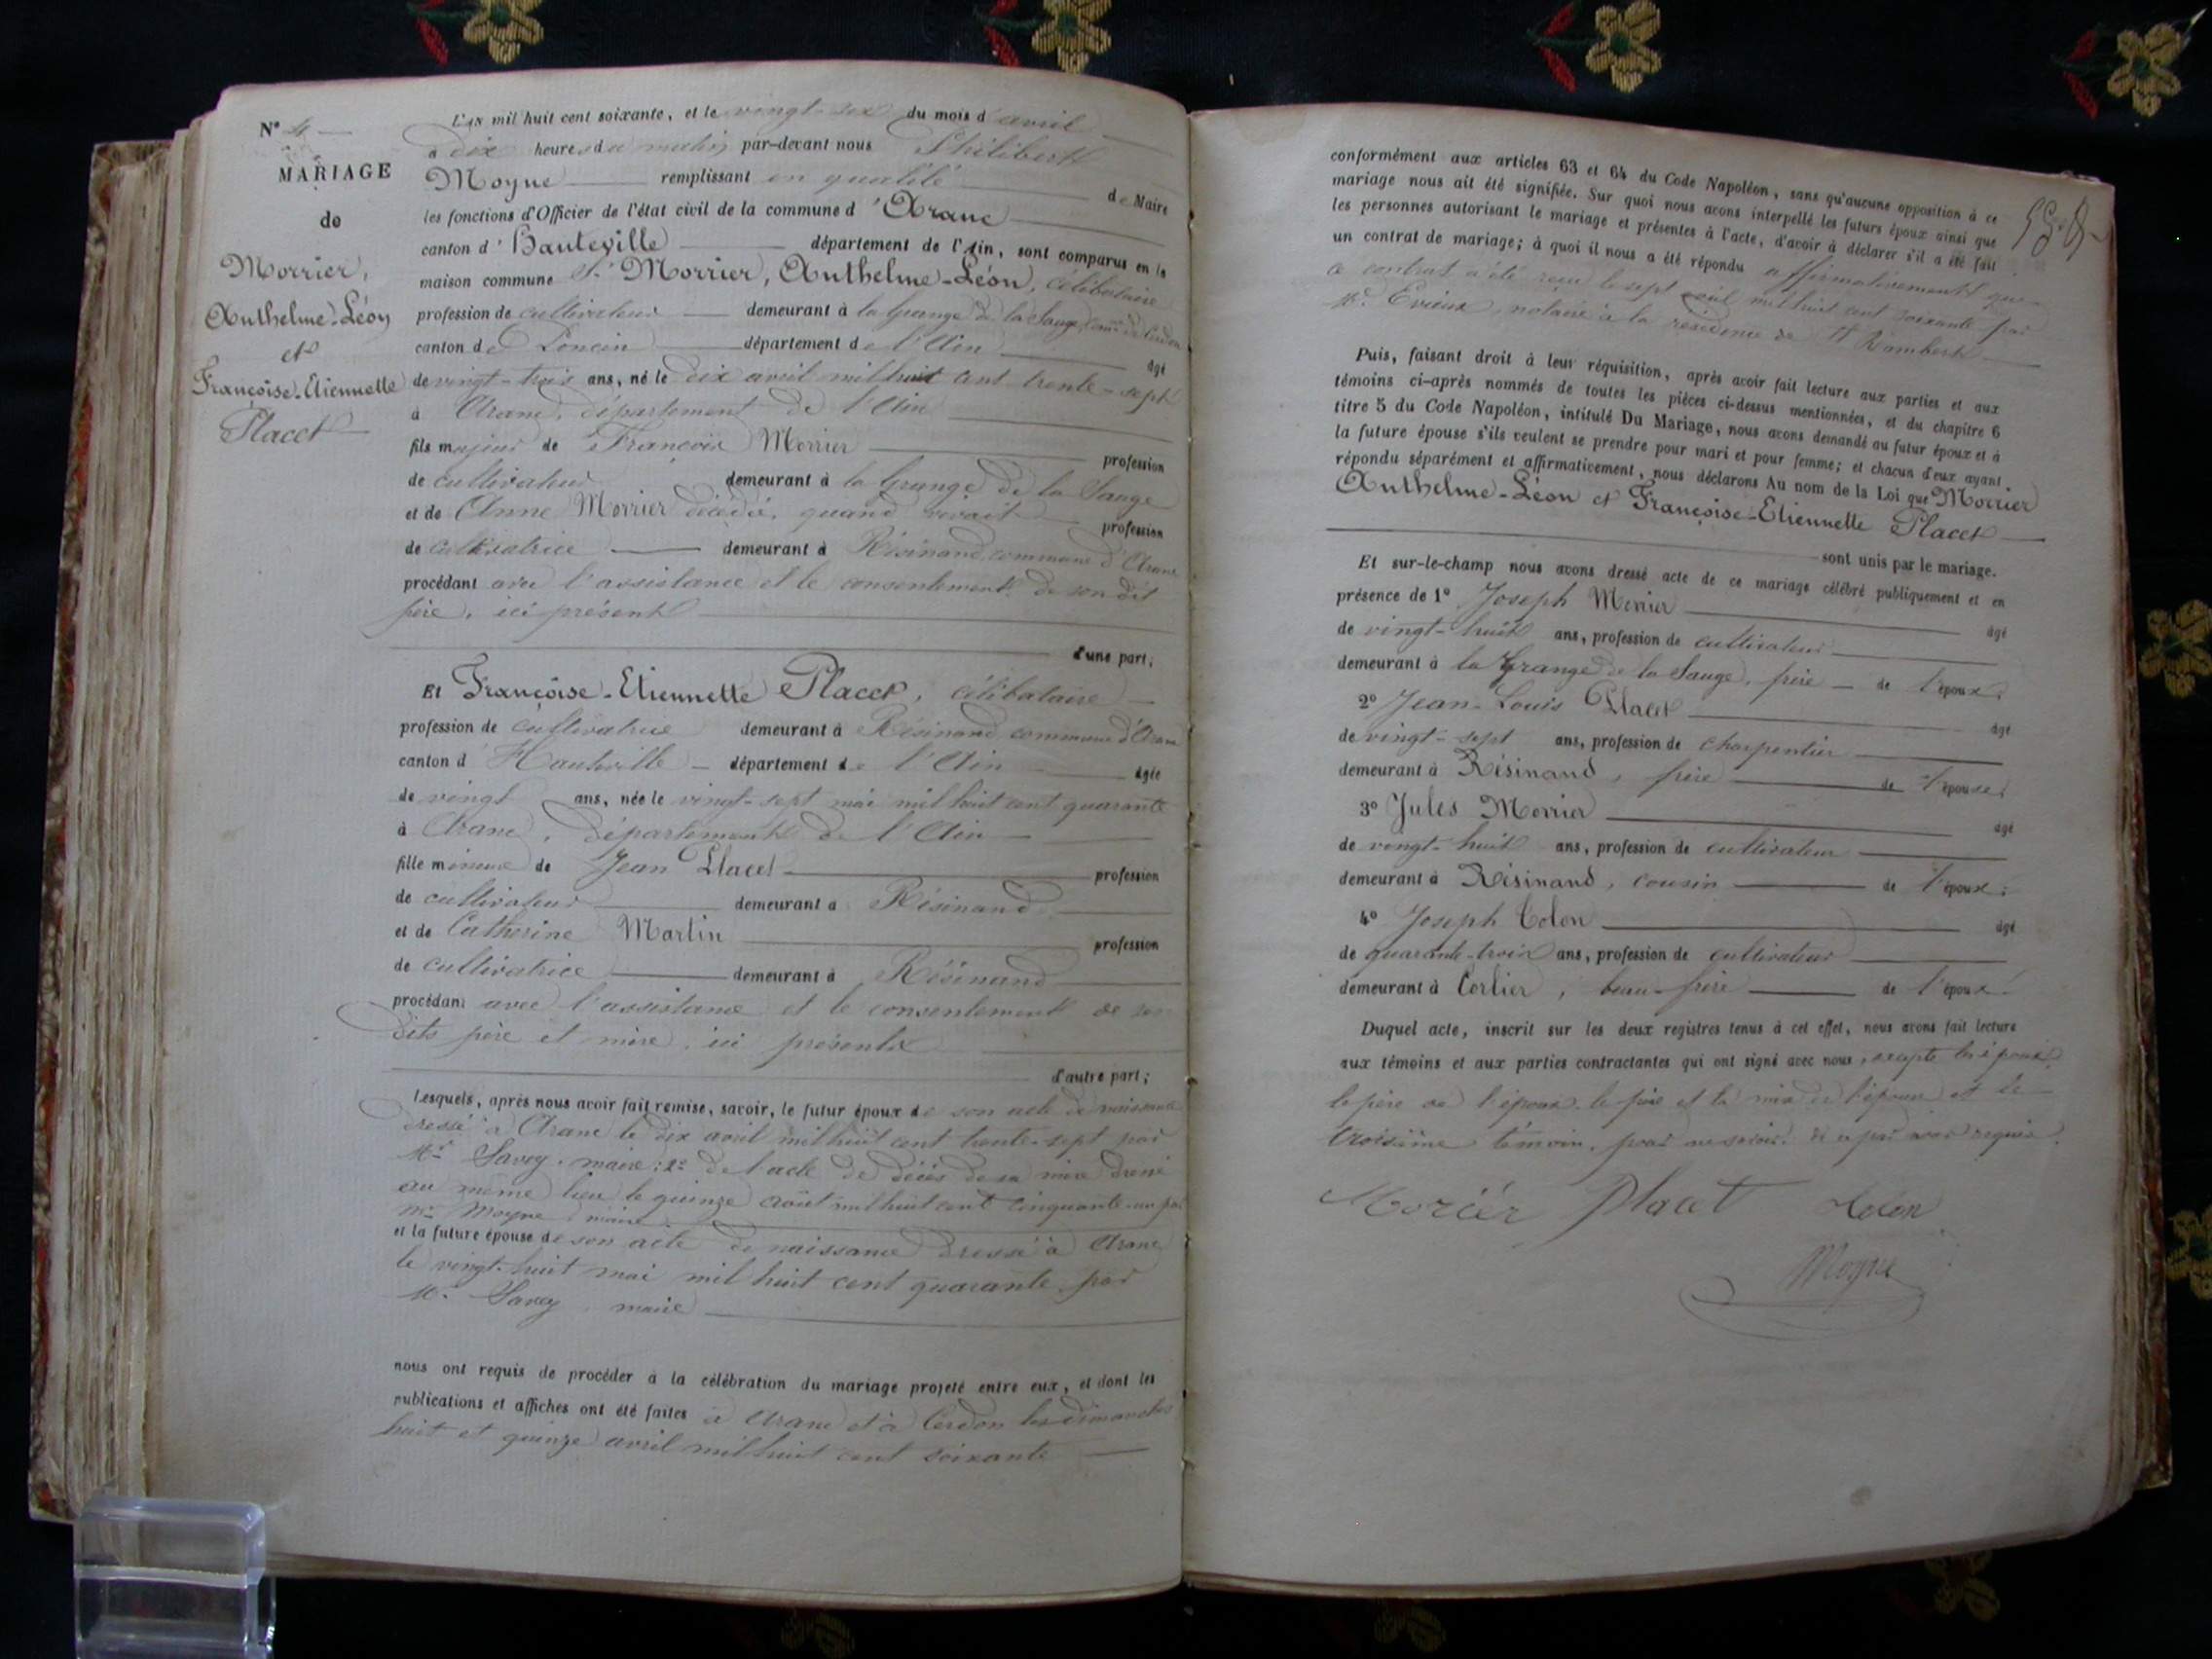 N° 4
MARIAGE
de
Morrier,
Anthelme-Léon
et
Françoise-Etiennette
Placet
L'AN mil huit cent soixante, et le vingt-six du mois d'avril
à dix heures du matin par-devant nous Philibert
Moyne remplissant en qualité de Maire
les fonctions d'Officier de l'état civil de la commune d'Aranc
canton d'Hauteville département de l'Ain, sont comparus en la
maison commune Sr Morrier, Anthelme-Léon, célibataire
profession de cultivateur demeurant à la Grange de la Sauge, comne de Cerdon
canton de Poncin département de l'Ain âgé
de vingt-trois ans, né le dix avril mil huit cent trente-sept
à Aranc, département de l'Ain
fils majeur de François Morrier profession
de cultivateur demeurant à la Grange de la Sauge
et de Anne Morrier décédée, quand vivait profession
de cultivatrice demeurant à Résinand commune d'Aranc
procédant avec l'assistance et le consentement de son dit
père, ici présent
d'une part;
Et Françoise-Etiennette Placet, célibataire
profession de cultivatrice demeurant à Résinand commune d'Aranc
canton d'Hauteville département de l'Ain âgée
de vingt ans, née le vingt-sept mai mil huit cent quarante
à Aranc, département de l'Ain
fille mineure de Jean Placet profession
de cultivateur demeurant à Résinand
et de Catherine Martin profession
de cultivatrice demeurant à Résinand
procédant avec l'assistance et le consentement de ses
dits père et mère, ici présents
d'autre part;
Lesquels, après nous avoir fait remise, savoir, le futur époux de son acte de naissance
dressé à Aranc le dix avril mil huit cent trente-sept par
Mr Savey, maire; 2° de l'acte de décès de sa mère dressé
au même lieu le quinze août mil huit cent cinquante-un par
Mr Moyne, maire
et la future épouse de son acte de naissance dressé à Aranc
le vingt-huit mai mil huit cent quarante par
Mr Savey, maire
nous ont requis de procéder à la célébration du mariage projeté entre eux, et dont les
publications et affiches ont été faites à Aranc et à Cerdon les dimanches
huit et quinze avril mil huit cent soixante
conformément aux articles 63 et 64 du Code Napoléon, sans qu'aucune opposition à ce
mariage nous ait été signifiée. Sur quoi nous avons interpellé les futurs époux ainsi que
les personnes autorisant le mariage et présentes à l'acte, d'avoir à déclarer s'il a été fait
un contrat de mariage; à quoi il nous a été répondu affirmativement que
ce contrat a été reçu le sept avril mil huit cent soixante par
Me Evieux, notaire à la résidence de St Rambert
Puis, faisant droit à leur réquisition, après avoir fait lecture aux parties et aux
témoins ci-après nommés de toutes les pièces ci-dessus mentionnées, et du chapitre 6
titre 5 du Code Napoléon, intitulé Du Mariage, nous avons demandé au futur époux et à
la future épouse s'ils veulent se prendre pour mari et pour femme; et chacun d'eux ayant
répondu séparément et affirmativement, nous déclarons Au nom de la Loi que Morrier
Anthelme-Léon et Françoise-Etiennette Placet
sont unis par le mariage.
Et sur-le-champ nous avons dressé acte de ce mariage célébré publiquement et en
présence de 1° Joseph Morrier âgé
de vingt-huit ans, profession de cultivateur
demeurant à la Grange de la Sauge, frère de l'époux;
2° Jean-Louis Placet âgé
de vingt-sept ans, profession de charpentier
demeurant à Résinand, frère de l'épouse;
3° Jules Morrier âgé
de vingt-huit ans, profession de cultivateur
demeurant à Résinand, cousin de l'époux;
4° Joseph Colon âgé
de quarante-trois ans, profession de cultivateur
demeurant à Corlier, beau-frère de l'époux.
Duquel acte, inscrit sur les deux registres tenus à cet effet, nous avons fait lecture
aux témoins et aux parties contractantes qui ont signé avec nous, excepté les époux,
le père de l'époux, le père et la mère de l'épouse et le
troisième témoin, pour ne savoir de ce par nous requis.
Morier Placet Colon
Moyne